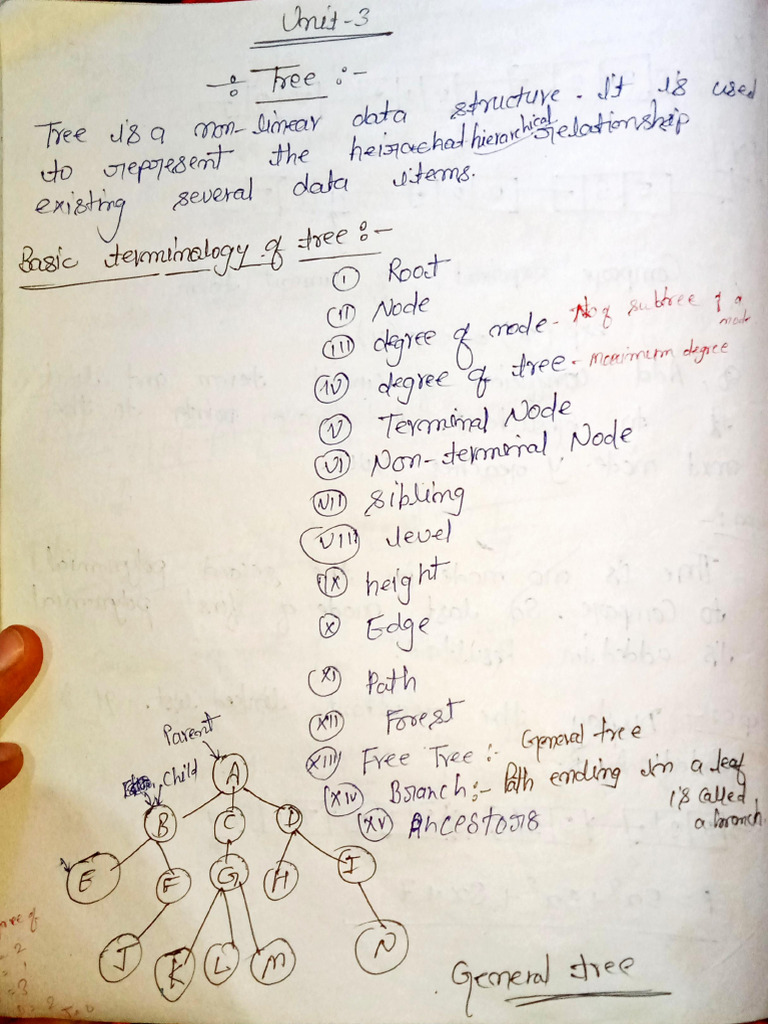 Unit-3
÷ Tree :-
Tree is a non-linear data structure. It is used
to represent the heirachad hierarchical relationship
existing several data items.
Basic terminalogy of tree :-
(i) Root
(ii) Node
(iii) degree of node - No of subtree of a node
(iv) degree of tree - maximum degree
(v) Terminal Node
(vi) Non-terminal Node
(vii) sibling
(viii) level
(ix) height
(x) Edge
(xi) Path
(xii) Forest
(xiii) Free Tree :- General tree
(xiv) Branch :- Path ending in a leaf
is called
a branch.
(xv) Ancestors
Parent
Child
A
B C D
E F G H I
J K L M N
General tree